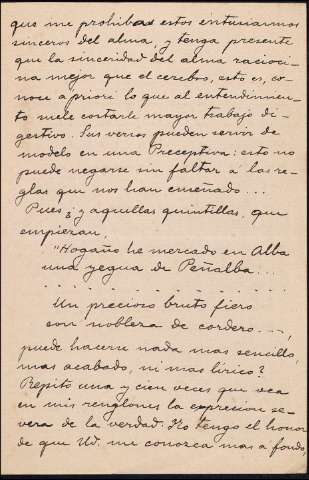 que me prohibas estos entusiasmos
sinceros del alma, y tenga presente
que la sinceridad del alma racioci-
na mejor que el cerebro, esto es, co-
noce a priori lo que al entendimien-
to suele costarle mayor trabajo di-
gestivo. Sus versos pueden servir de
modelo en una Preceptiva: esto no
puede negarse sin faltar á las re-
glas que nos han enseñado...
Pues ¿y aquellas quintillas, que
empiezan,
"Hogaño he mercado en Alba
una yegua de Peñalba...
. . . . . . . . . . . . . . .
Un precioso bruto fiero
con nobleza de cordero...,
puede hacerse nada mas sencillo,
mas acabado, ni mas lírico?
Repito una y cien veces que vea
en mis renglones la expresion se-
vera de la verdad. No tengo el honor
de que Ud. me conozca mas a fondo,